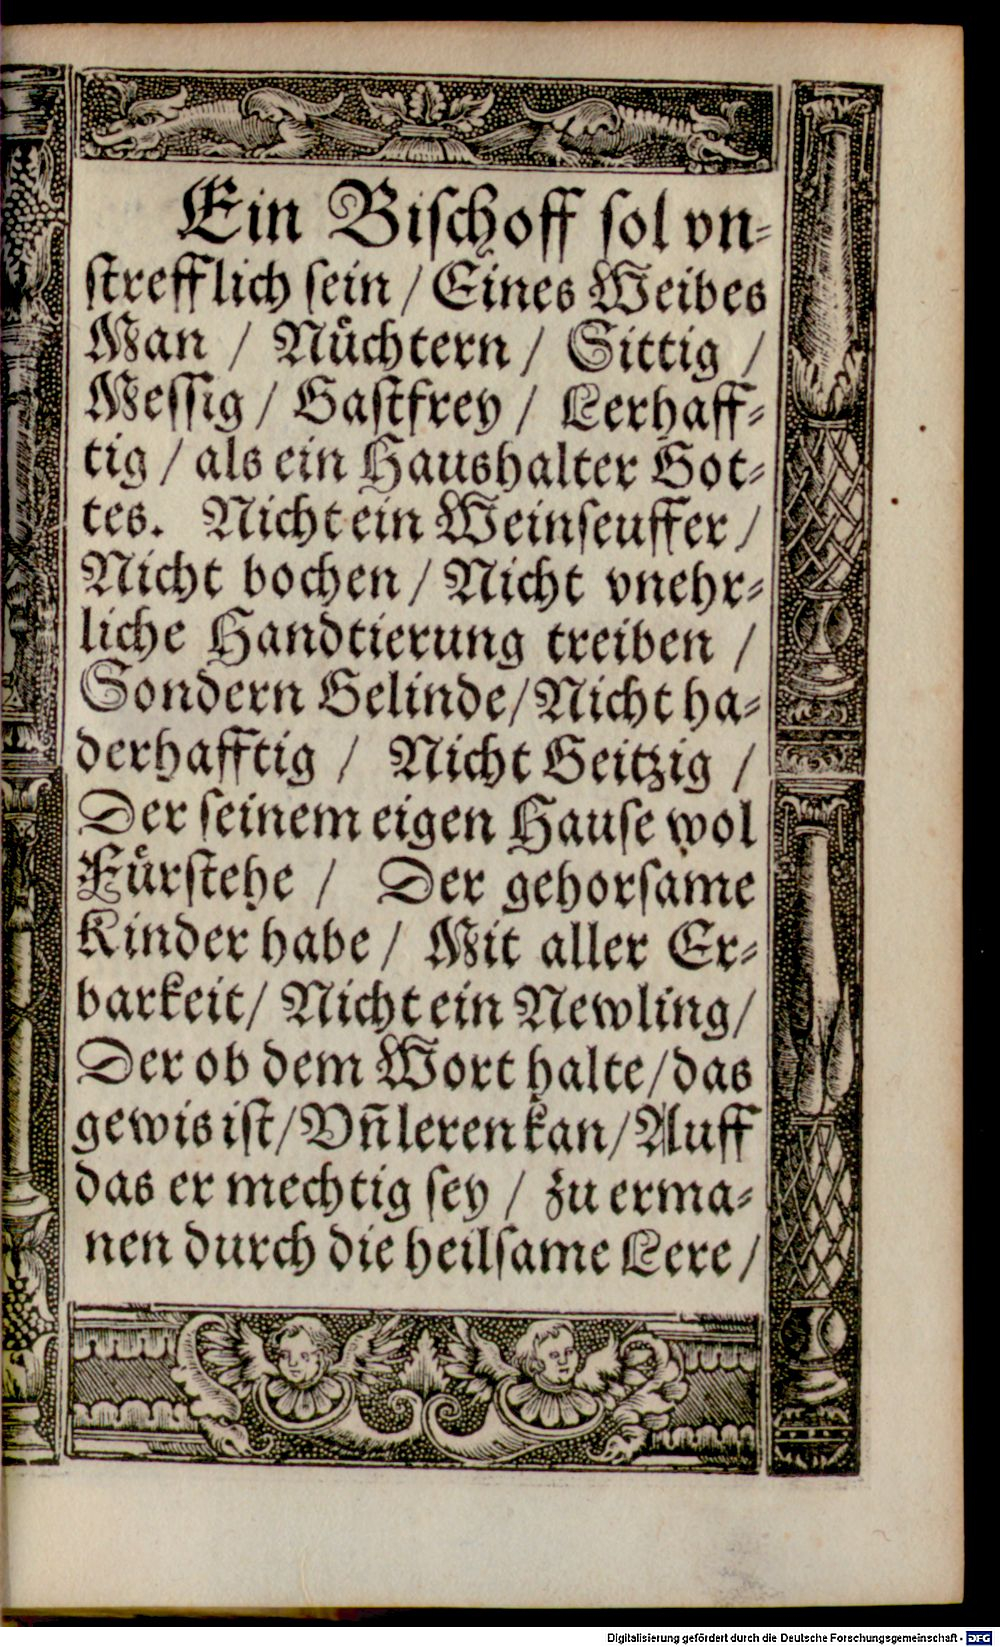 Ein Bischoff sol vn⸗
strefflich sein / Eines Weibes
Man / Nüchtern / Sittig /
Messig / Gastfrey / Lerhaff⸗
tig / als ein Haushalter Got⸗
tes. Nicht ein Weinseuffer /
Nicht bochen / Nicht vnehr⸗
liche Handtierung treiben /
Sondern Gelinde / Nicht ha⸗
derhafftig / Nicht Geitzig /
Der seinem eigen Hause wol
Fürstehe / Der gehorsame
Kinder habe / Mit aller Er⸗
barkeit / Nicht ein Newling /
Der ob dem Wort halte / das
gewis ist / Vn̄ leren kan / Auff
das er mechtig sey / zu erma⸗
nen durch die heilsame Lere /
Digitalisierung gefördert durch die Deutsche Forschungsgemeinschaft - DFG